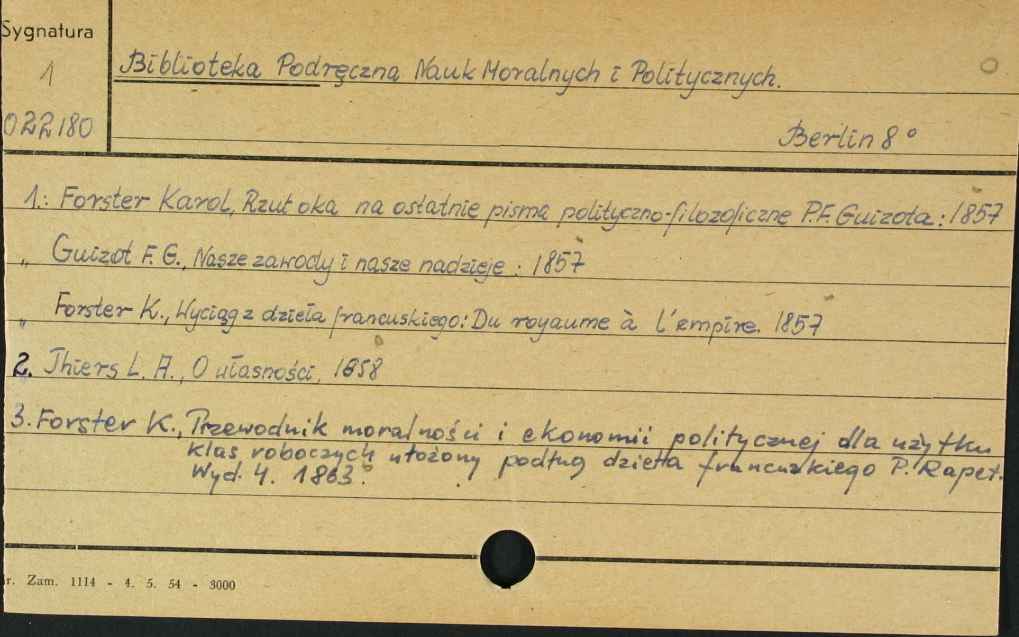 Sygnatura
1
022180
Biblioteka Podręczna Nauk Moralnych i Politycznych.
Berlin 8°
1.: Forster Karol, Rzut oka na ostatnie pisma polityczno-filozoficzne P.F. Guizota: 1857
„ Guizot F. G., Nasze zawody i nasze nadzieje: 1857
„ Forster K., Wyciąg z dzieła francuskiego: Du royaume à l'empire. 1857
2. Thiers L. A., O własności, 1858
3. Forster K., Przewodnik moralności i ekonomii politycznej dla użytku
klas roboczych ułożony podług dzieła francuzkiego P. Rapet.
Wyd. 4. 1863.
r. Zam. 1114 - 4. 5. 54 - 3000